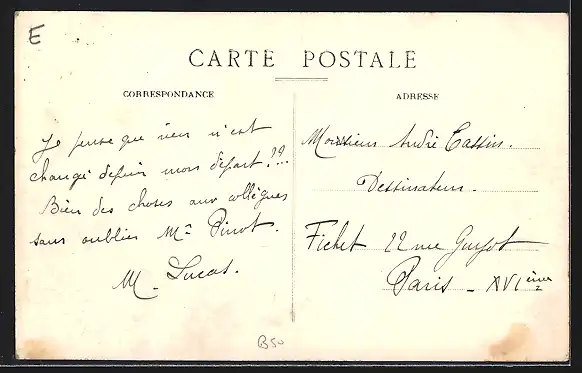 E
CARTE POSTALE
CORRESPONDANCE
ADRESSE
Je pense que rien n'est
changé depuis mon départ ??...
Bien des choses aux collègues
sans oublier Mr Pinot.
M. Lucas.
Monsieur André Cassin.
Dessinateur.
Fichet 22 rue Guyot
Paris - XVIème
B50